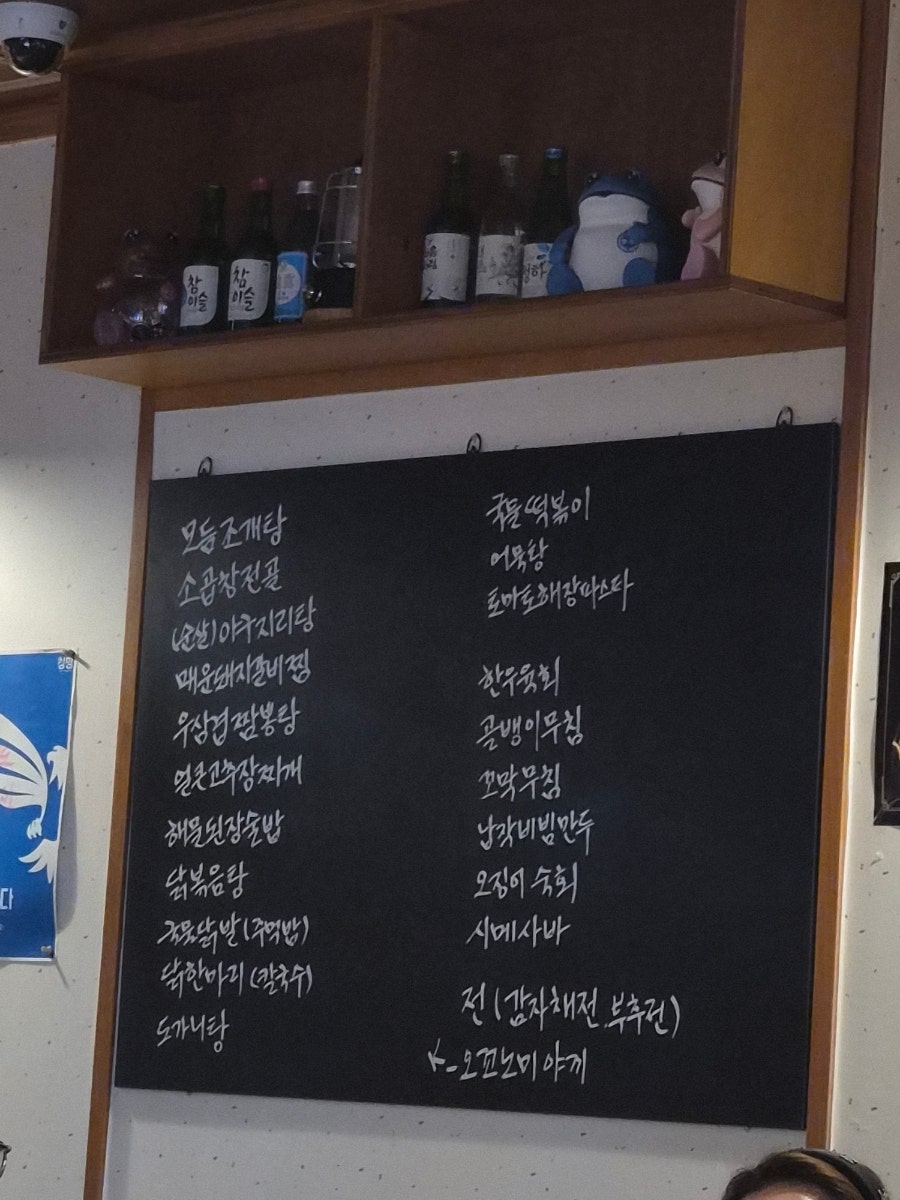 참
이슬
참
이슬
청하
모듬조개탕
소곱창전골
(순살)아구지리탕
매운돼지갈비찜
우삼겹짬뽕탕
얼큰고추장찌개
해물된장술밥
닭볶음탕
국물닭발(주먹밥)
닭한마리(칼국수)
도가니탕
국물떡볶이
어묵탕
토마토해장파스타
한우육회
골뱅이무침
꼬막무침
납작비빔만두
오징어숙회
시메사바
전(감자채전.부추전)
K-오꼬노미야끼
다